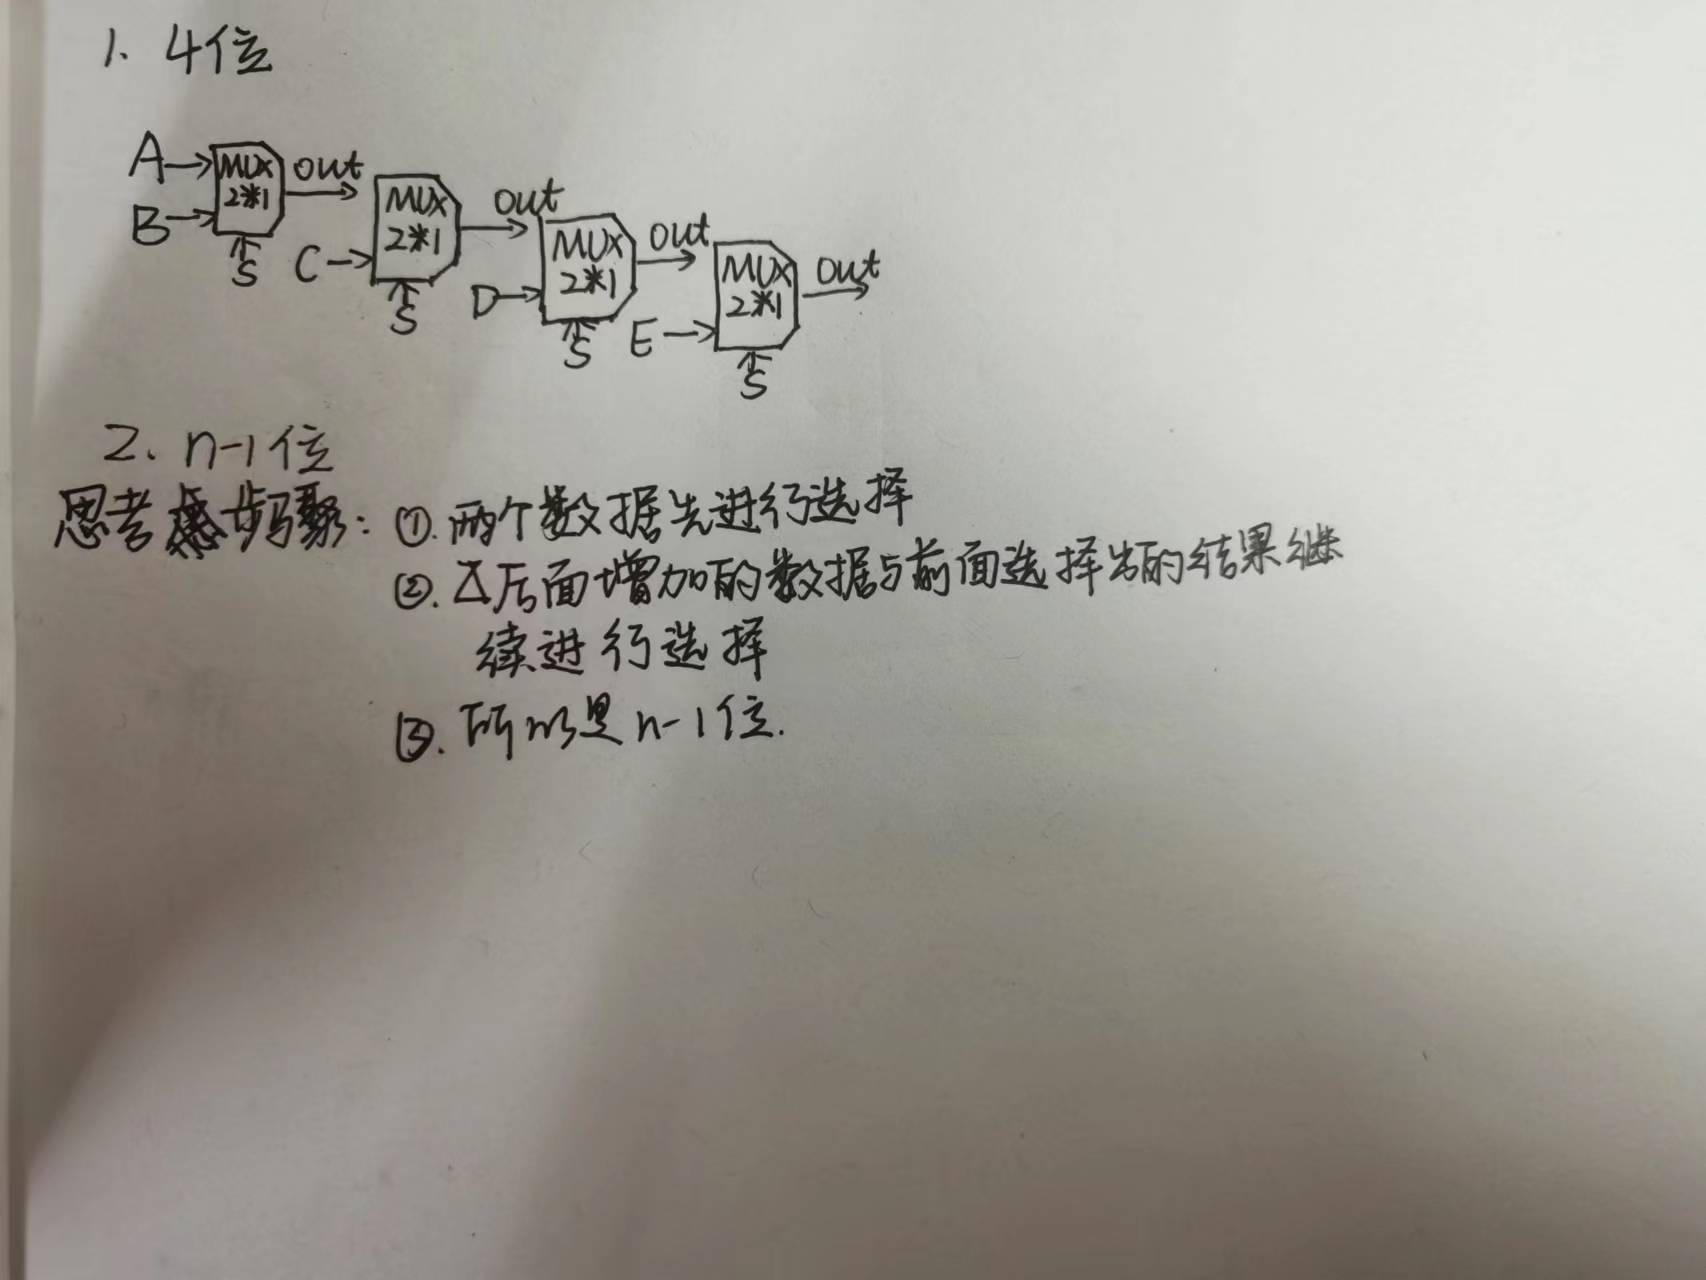 1. 4位
A
B
MUX
2*1
S
out
C
MUX
2*1
S
out
D
MUX
2*1
S
out
E
MUX
2*1
S
out
2. n-1位
思考步骤: ①.两个数据先进行选择
②.后面增加的数据与前面选择出的结果继
续进行选择
③.所以是n-1位.